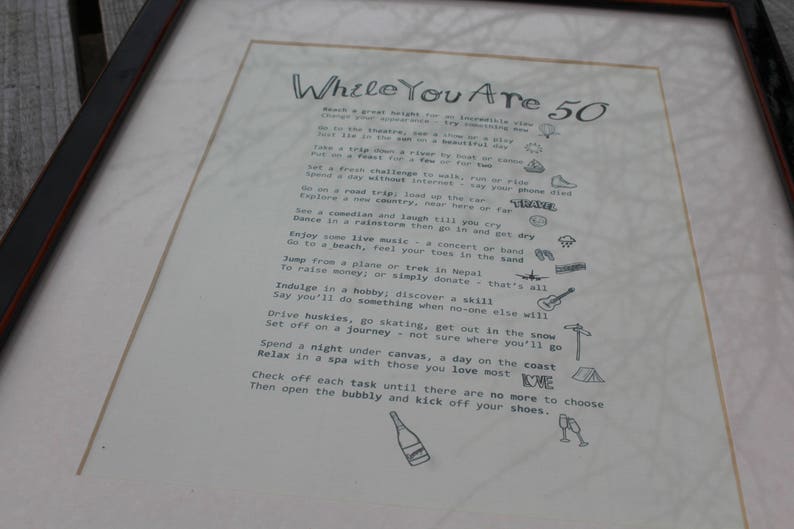 While You Are 50
Reach a great height for an incredible view
Change your appearance - try something new
Go to the theatre, see a show or a play
Just lie in the sun on a beautiful day
Take a trip down a river by boat or canoe
Put on a feast for a few or for two
Set a fresh challenge to walk, run or ride
Spend a day without internet - say your phone died
Go on a road trip; load up the car
Explore a new country, near here or far
TRAVEL
See a comedian and laugh till you cry
Dance in a rainstorm then go in and get dry
Enjoy some live music - a concert or band
Go to a beach, feel your toes in the sand
Jump from a plane or trek in Nepal
To raise money; or simply donate - that's all
Indulge in a hobby; discover a skill
Say you'll do something when no-one else will
Drive huskies, go skating, get out in the snow
Set off on a journey - not sure where you'll go
Spend a night under canvas, a day on the coast
Relax in a spa with those you love most
LOVE
Check off each task until there are no more to choose
Then open the bubbly and kick off your shoes.